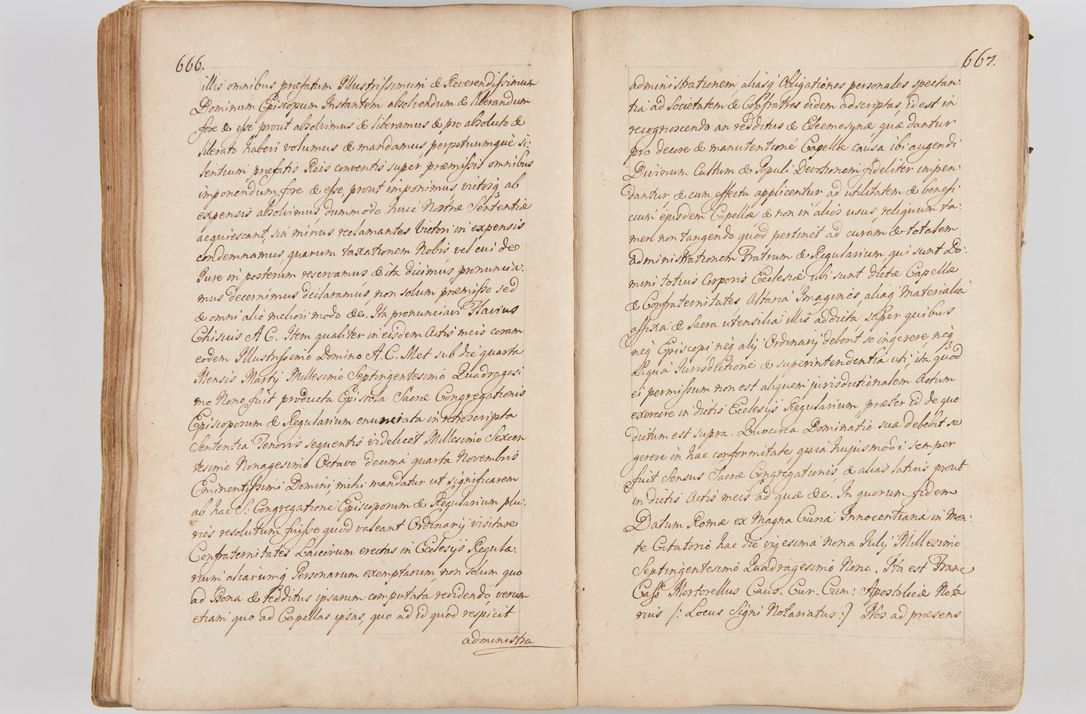 666.
illis omnibus præfatum Illustrissimum & Reverendissimum
Dominum Episcopum Instantem absolvendum & liberandum
fore & esse prout absolvimus & liberamus & pro absoluto &
liberato haberi volumus & mandamus perpetuumque si-
lentium præfatis Reis conventis super præmissis omnibus
imponendum fore & esse, prout imponimus victosq ab
expensis absolvimus dummodo huic Nostræ Sententiæ
acquiescant, sin minus reclamantes Victori in expensis
condemnamus quarum taxationem Nobis vel cui de
Jure in posterum reservamus & ita dicimus pronuncia-
mus decernimus declaramus, non solum præmisso sed
& omni alio meliori modo &c. Ita pronunciavi Flavius
Chisius A. C. Item qualiter in eisdem Actis meis coram
eodem Illustrissimo Domino A. C. Met sub die quarta
Mensis Martij Millesimo Septingentesimo Quadragesi
mo Nono fuit producta Epistola Sacræ Congregationis
Episcoporum & Regularium enunciata in retroscripta
Sententia Tenoris sequentis videlicet Millesimo Sexcen
tesimo Nonagesimo Octavo decima quarta Novembris
Eminentissimi Domini, mihi mandatur ut significarem
ab hac S: Congregatione Episcoporum & Regularium plu-
ries resolutum fuisse quod valeant Ordinarij visitare
Confraternitates Laicorum erectas in Ecclesijs Regula-
rium aliarumq Personarum exemptarum non solum quo
ad Bona & Redditus ipsarum computata revidendo verum
etiam quo ad Capellas ipsas, quo ad id quod respicit
administra
667.
administrationem aliasq Obligationes personales spectan-
tia ad Societatem & Confratres eidem adscriptas, id est in
recognoscendo an redditus & Eleemosynæ quæ dantur
pro decore & manutentione Capellæ causa ibi augendi
Divinum Cultum & Populi Devotionem fideliter impen-
dantur & cum effectu applicentur ad utilitatem & benefi
cium ejusdem Capellæ & non in alios usus, reliquum ta-
men non tangendo quod pertinet ad curam & totalem
administrationem Fratrum & Regularium qui sunt Do-
mini totius Corporis Ecclesiæ ubi sunt dictæ Capellæ
& Confraternitates Altaria Imagines, aliaq Materialia
affixa & Sacra utensilia illis addicta super quibus
neq Episcopi neq alij Ordinarij debent se ingerere neq
aliqua Jurisdictione & superintendentia uti, ita quod
ei permissum non est aliquem jurisdictionalem Actum
exercere in dictis Ecclesijs Regularium præter id de quo
dictum est supra. Quocirca Dominatio sua debebit se
gerere in hac conformitate quia hujusmodi semper
fuit Sensus Sacræ Congregationis, & alias latius prout
in dictis Actis meis ad quæ &c. In quorum fidem
Datum Romæ ex Magna Curia Innocentiana in Mon-
te Citatorio hac die vigesima nona Julij Millesimo
Septingentesimo Quadragesimo Nono. Ita est Franc
Cass Mortorellus Caus. Cur. Cam: Apostolicæ Nota
rius /: Locus Signi Notariatus :/ Nos ad præsens